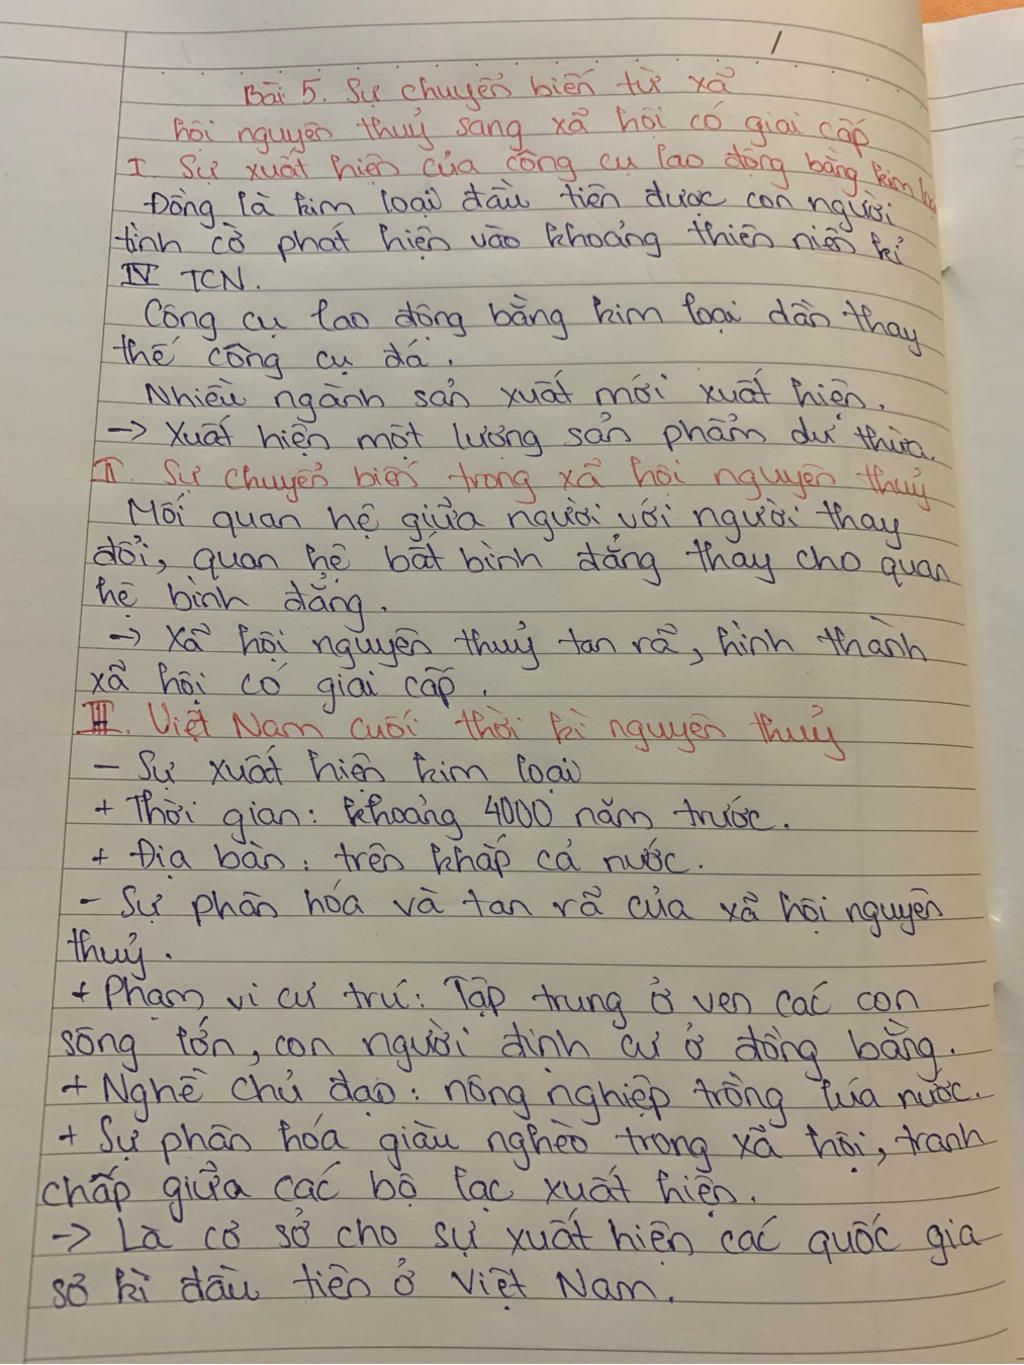 Bài 5. Sự chuyển biến từ xã
hội nguyên thuỷ sang xã hội có giai cấp
I. Sự xuất hiện của công cụ lao động bằng kim loại
Đồng là kim loại đầu tiên được con người
tình cờ phát hiện vào khoảng thiên niên kỉ
IV TCN.
Công cụ lao động bằng kim loại dần thay
thế công cụ đá.
Nhiều ngành sản xuất mới xuất hiện.
-> Xuất hiện một lượng sản phẩm dư thừa.
II. Sự chuyển biến trong xã hội nguyên thuỷ
Mối quan hệ giữa người với người thay
đổi, quan hệ bất bình đẳng thay cho quan
hệ bình đẳng.
-> Xã hội nguyên thuỷ tan rã, hình thành
xã hội có giai cấp.
III. Việt Nam cuối thời kì nguyên thuỷ
- Sự xuất hiện kim loại
+ Thời gian: khoảng 4000 năm trước.
+ Địa bàn: trên khắp cả nước.
- Sự phân hóa và tan rã của xã hội nguyên
thuỷ.
+ Phạm vi cư trú: Tập trung ở ven các con
sông lớn, con người định cư ở đồng bằng.
+ Nghề chủ đạo: nông nghiệp trồng lúa nước.
+ Sự phân hóa giàu nghèo trong xã hội, tranh
chấp giữa các bộ lạc xuất hiện.
-> Là cơ sở cho sự xuất hiện các quốc gia
sơ kì đầu tiên ở Việt Nam.